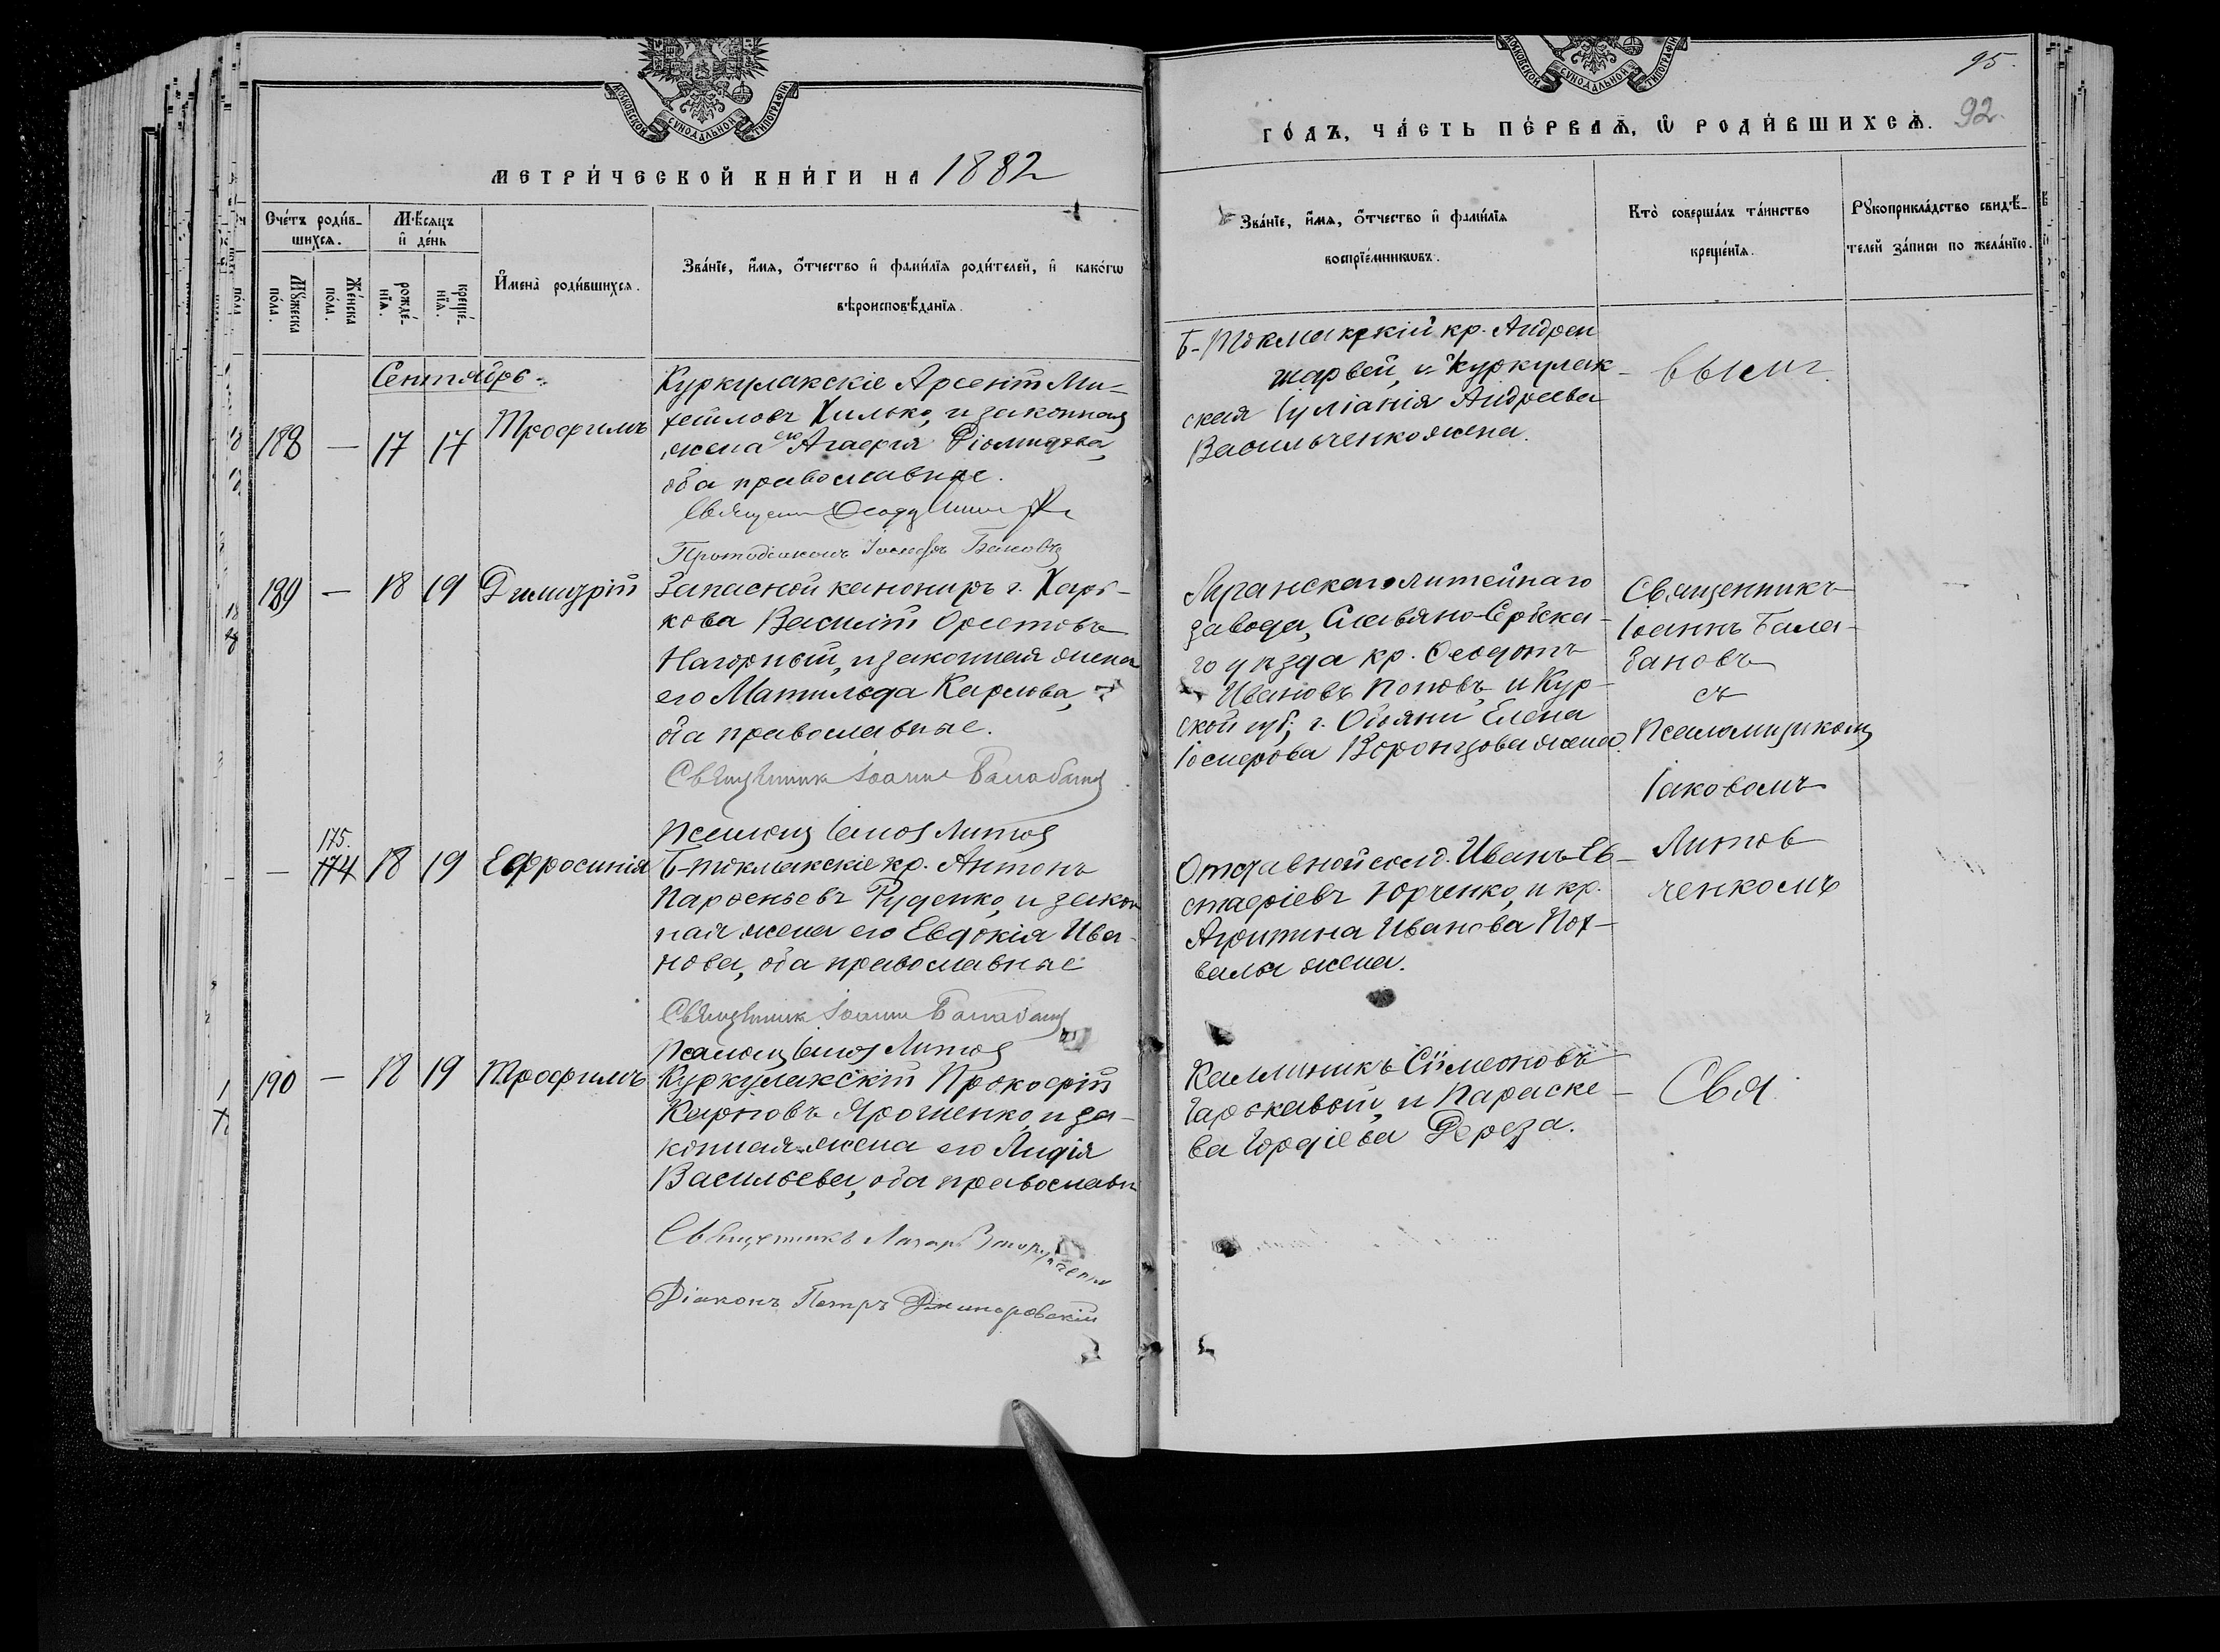 МОСКОВСКОЙ СУНОДАЛЬНОЙ ТИПОГРАФІИ
МЕТРИ́ЧЕСКОЙ КНИ́ГИ НА 1882
Сче́тъ роди́в-
шихся.
Мѣ́сяцъ
и҆ де́нь
Мꙋ́жеска
по́ла.
Же́нска
по́ла.
рожде́-
нїя.
креще́-
нїя.
И҆мена̀ роди́вшихся.
Зва́нїе, и҆́мя, ѻ҆́тчество и҆ фами́лїя роди́телей, и҆ како́гѡ
вѣроисповѣ́данїя.
Сентябрь
188 — 17 17 Трофимъ
Куркулакскіе Арсеній Ми-
хайловъ Хилько, и законная
жена его Агафія Діомидова,
оба православные.
Протодіаконъ Іосифъ
189 — 18 19 Димитрій
Запасной канониръ г. Харь-
кова Василій Орестовъ
Нагорный, и законная жена
его Матильда Карлова, о-
ба православные.
Священник Іоанн Балабанов
— 175. 174 18 19 Ефросинія
Б-токмакскіе кр. Антонъ
Парѳеньевъ Руденко, и закон
ная жена его Евдокія Ива-
нова, оба православные
Священник Іоанн Балабанов
190 — 18 19 Трофимъ
Куркулакскій Прокофій
Карповъ Ярошенко, и за-
конная жена его Лидія
Васильева, оба православн
Священникъ Лазарь
Діаконъ Петръ
95.
МОСКОВСКОЙ СУНОДАЛЬНОЙ ТИПОГРАФІИ
ГО́ДЪ, ЧА́СТЬ ПЕ́РВАЯ, Ѡ҆ РОДИ́ВШИХСЯ. 92.
Зва́нїе, и҆́мя, ѻ҆́тчество и҆ фами́лїя
воспрїе́мникѡвъ.
Кто̀ соверша́лъ та́инство
креще́нїя.
Рꙋкоприкла́дство свидѣ́-
телей за́писи по жела́нїю.
Б-Токмакскій кр. Андрей
Шарвей, и Куркулак-
ская Іуліанія Андреева
Васильченко жена.
Луганскаго литейнаго
завода, Славяно-Сербска-
го уѣзда кр. Ѳеодотъ
Ивановъ Поповъ, и Кур-
ской губ, г. Обояни Елена
Іосифова Воронцова жена.
Священникъ
Іоаннъ Бала-
бановъ
съ
Псаломщикомъ
Іаковомъ
Литов
ченкомъ
Отставной солд. Иванъ Ев-
стафіевъ Юрченко, и кр.
Агрипина Иванова Пох-
вала жена.
Каллиникъ Сѵмеоновъ
Гаркавый, и Параске-
ва Гордіева Дереза.
Свя